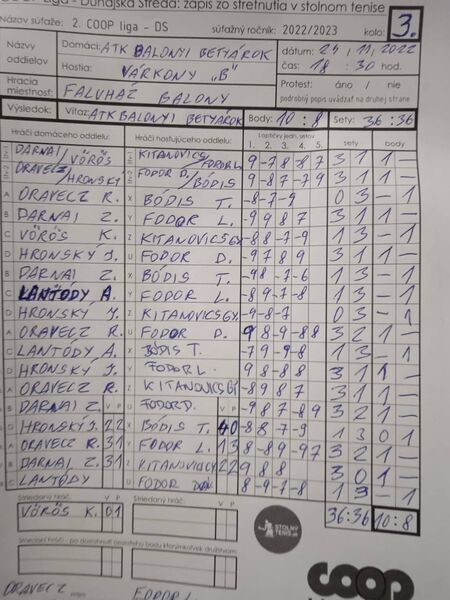 Liga - Dunajská Streda: zápis zo stretnutia v stolnom tenise
Názov súťaže: 2. COOP liga - DS súťažný ročník: 2022/2023 kolo: 3.
Názvy oddielov Domáci: ATK BALONYI BETYÁROK dátum: 24/11/2022
Hostia: VÁRKONY "B" čas: 18:30 hod.
Hracia miestnosť: FALUHÁZ BALONY Protest: áno / nie
podrobný popis uvádzať na druhej strane
Výsledok: Víťaz: ATK BALONYI BETYÁROK Body: 10:8 Sety: 36:36
Hráči domáceho oddielu: Hráči hosťujúceho oddielu: Loptičky jedn. setov sety body
1. 2. 3. 4. 5.
DARNAI/VÖRÖS KITANOVICS/FODOR L. 9 -7 8 8 7 3 1 1 -
ORAVECZ/HRONSKÝ FODOR D./BÓDIS 9 -8 7 -7 9
A ORAVECZ R. X BÓDIS T. -8 -7 -9 0 3 - 1
B DARNAI Z. Y FODOR L. -9 9 8 7 3 1 1 -
C VÖRÖS K. Z KITANOVICS GY. -8 8 -7 -9 1 3 - 1
D HRONSKÝ J. U FODOR D. -9 7 8 9 3 1 1 -
B DARNAI Z. X BÓDIS T. -9 8 -7 -6 1 3 - 1
C LANTÓDY A. Y FODOR L. -8 9 -7 -8 1 3 - 1
D HRONSKÝ J. Z KITANOVICS GY. -9 -8 -7 0 3 - 1
A ORAVECZ R. U FODOR D. 9 8 -9 -8 8 3 2 1 -
C LANTÓDY A. X BÓDIS T. -7 9 -9 -8 1 3 - 1
D HRONSKÝ J. Y FODOR L. 9 8 -8 8 3 1 1 -
A ORAVECZ R. Z KITANOVICS GY -8 9 8 7 3 1 1 -
B DARNAI Z. V P U FODOR D. V P -9 8 7 -8 9 3 2 1 -
D HRONSKÝ J. 2 2 X BÓDIS T. 4 0 -8 8 7 -9 1 3 0 1
A ORAVECZ R. 3 1 Y FODOR L. 1 3 8 -8 9 -9 7 3 2 1 -
B DARNAI Z. 3 1 Z KITANOVICS GY 2 2 9 8 8 3 0 1 -
C LANTÓDY U FODOR -8 -9 -7 -8 1 3 - 1
Striedaný hráč: V P Striedaný hráč: V P
VÖRÖS K. 0 1 36:36 10:8
STOLNÝ TENIS
ORAVECZ FODOR L.
coop